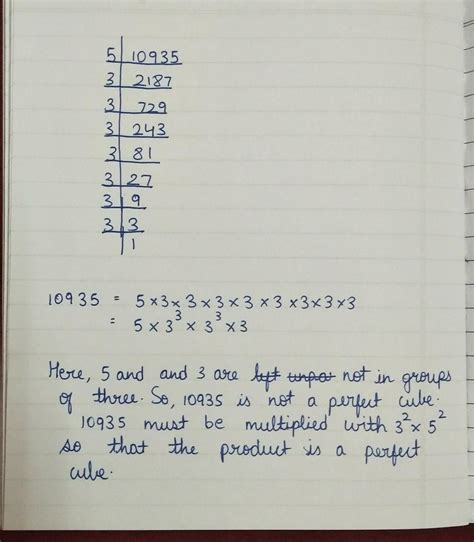 5 | 10935
3 | 2187
3 | 729
3 | 243
3 | 81
3 | 27
3 | 9
3 | 3
| 1
10935 = 5 × 3 × 3 × 3 × 3 × 3 × 3 × 3 × 3
= 5 × 3³ × 3³ × 3
Here, 5 and and 3 are not in groups
of three. So, 10935 is not a perfect cube.
10935 must be multiplied with 3² × 5²
so that the product is a perfect
cube.